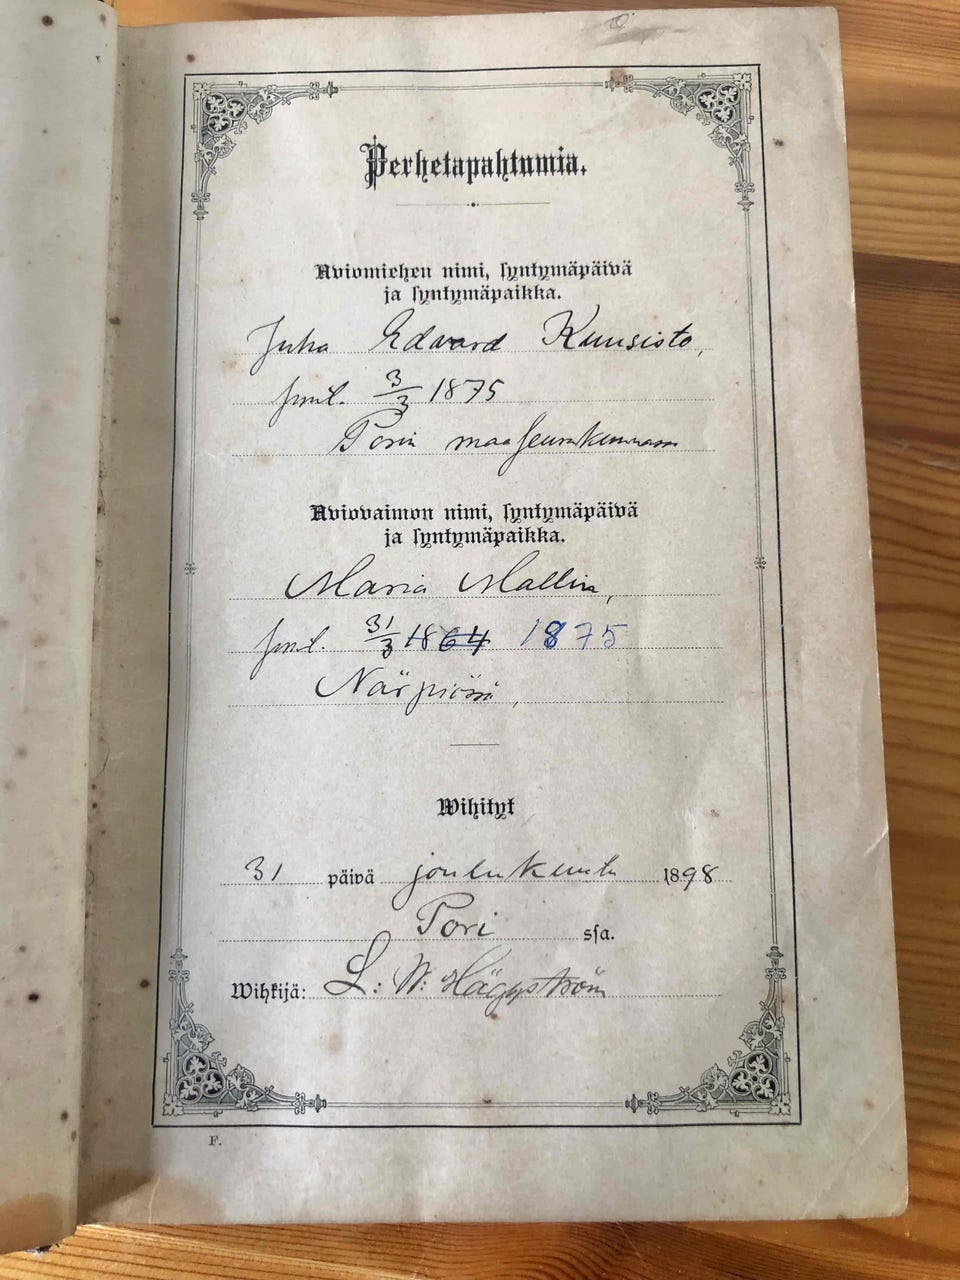 Perhetapahtumia.
Aviomiehen nimi, syntymäpäivä
ja syntymäpaikka.
Juha Edvard Kuusisto,
synt. 3/3 1875
Porin maaseurakunnassa
Aviovaimon nimi, syntymäpäivä
ja syntymäpaikka.
Maria Mallin,
synt. 31/3 1864 1875
Närpiössä,
Wihityt
31 päivä joulukuuta 1898
Pori ssa.
Wihkijä: L: W: Häggström
F.